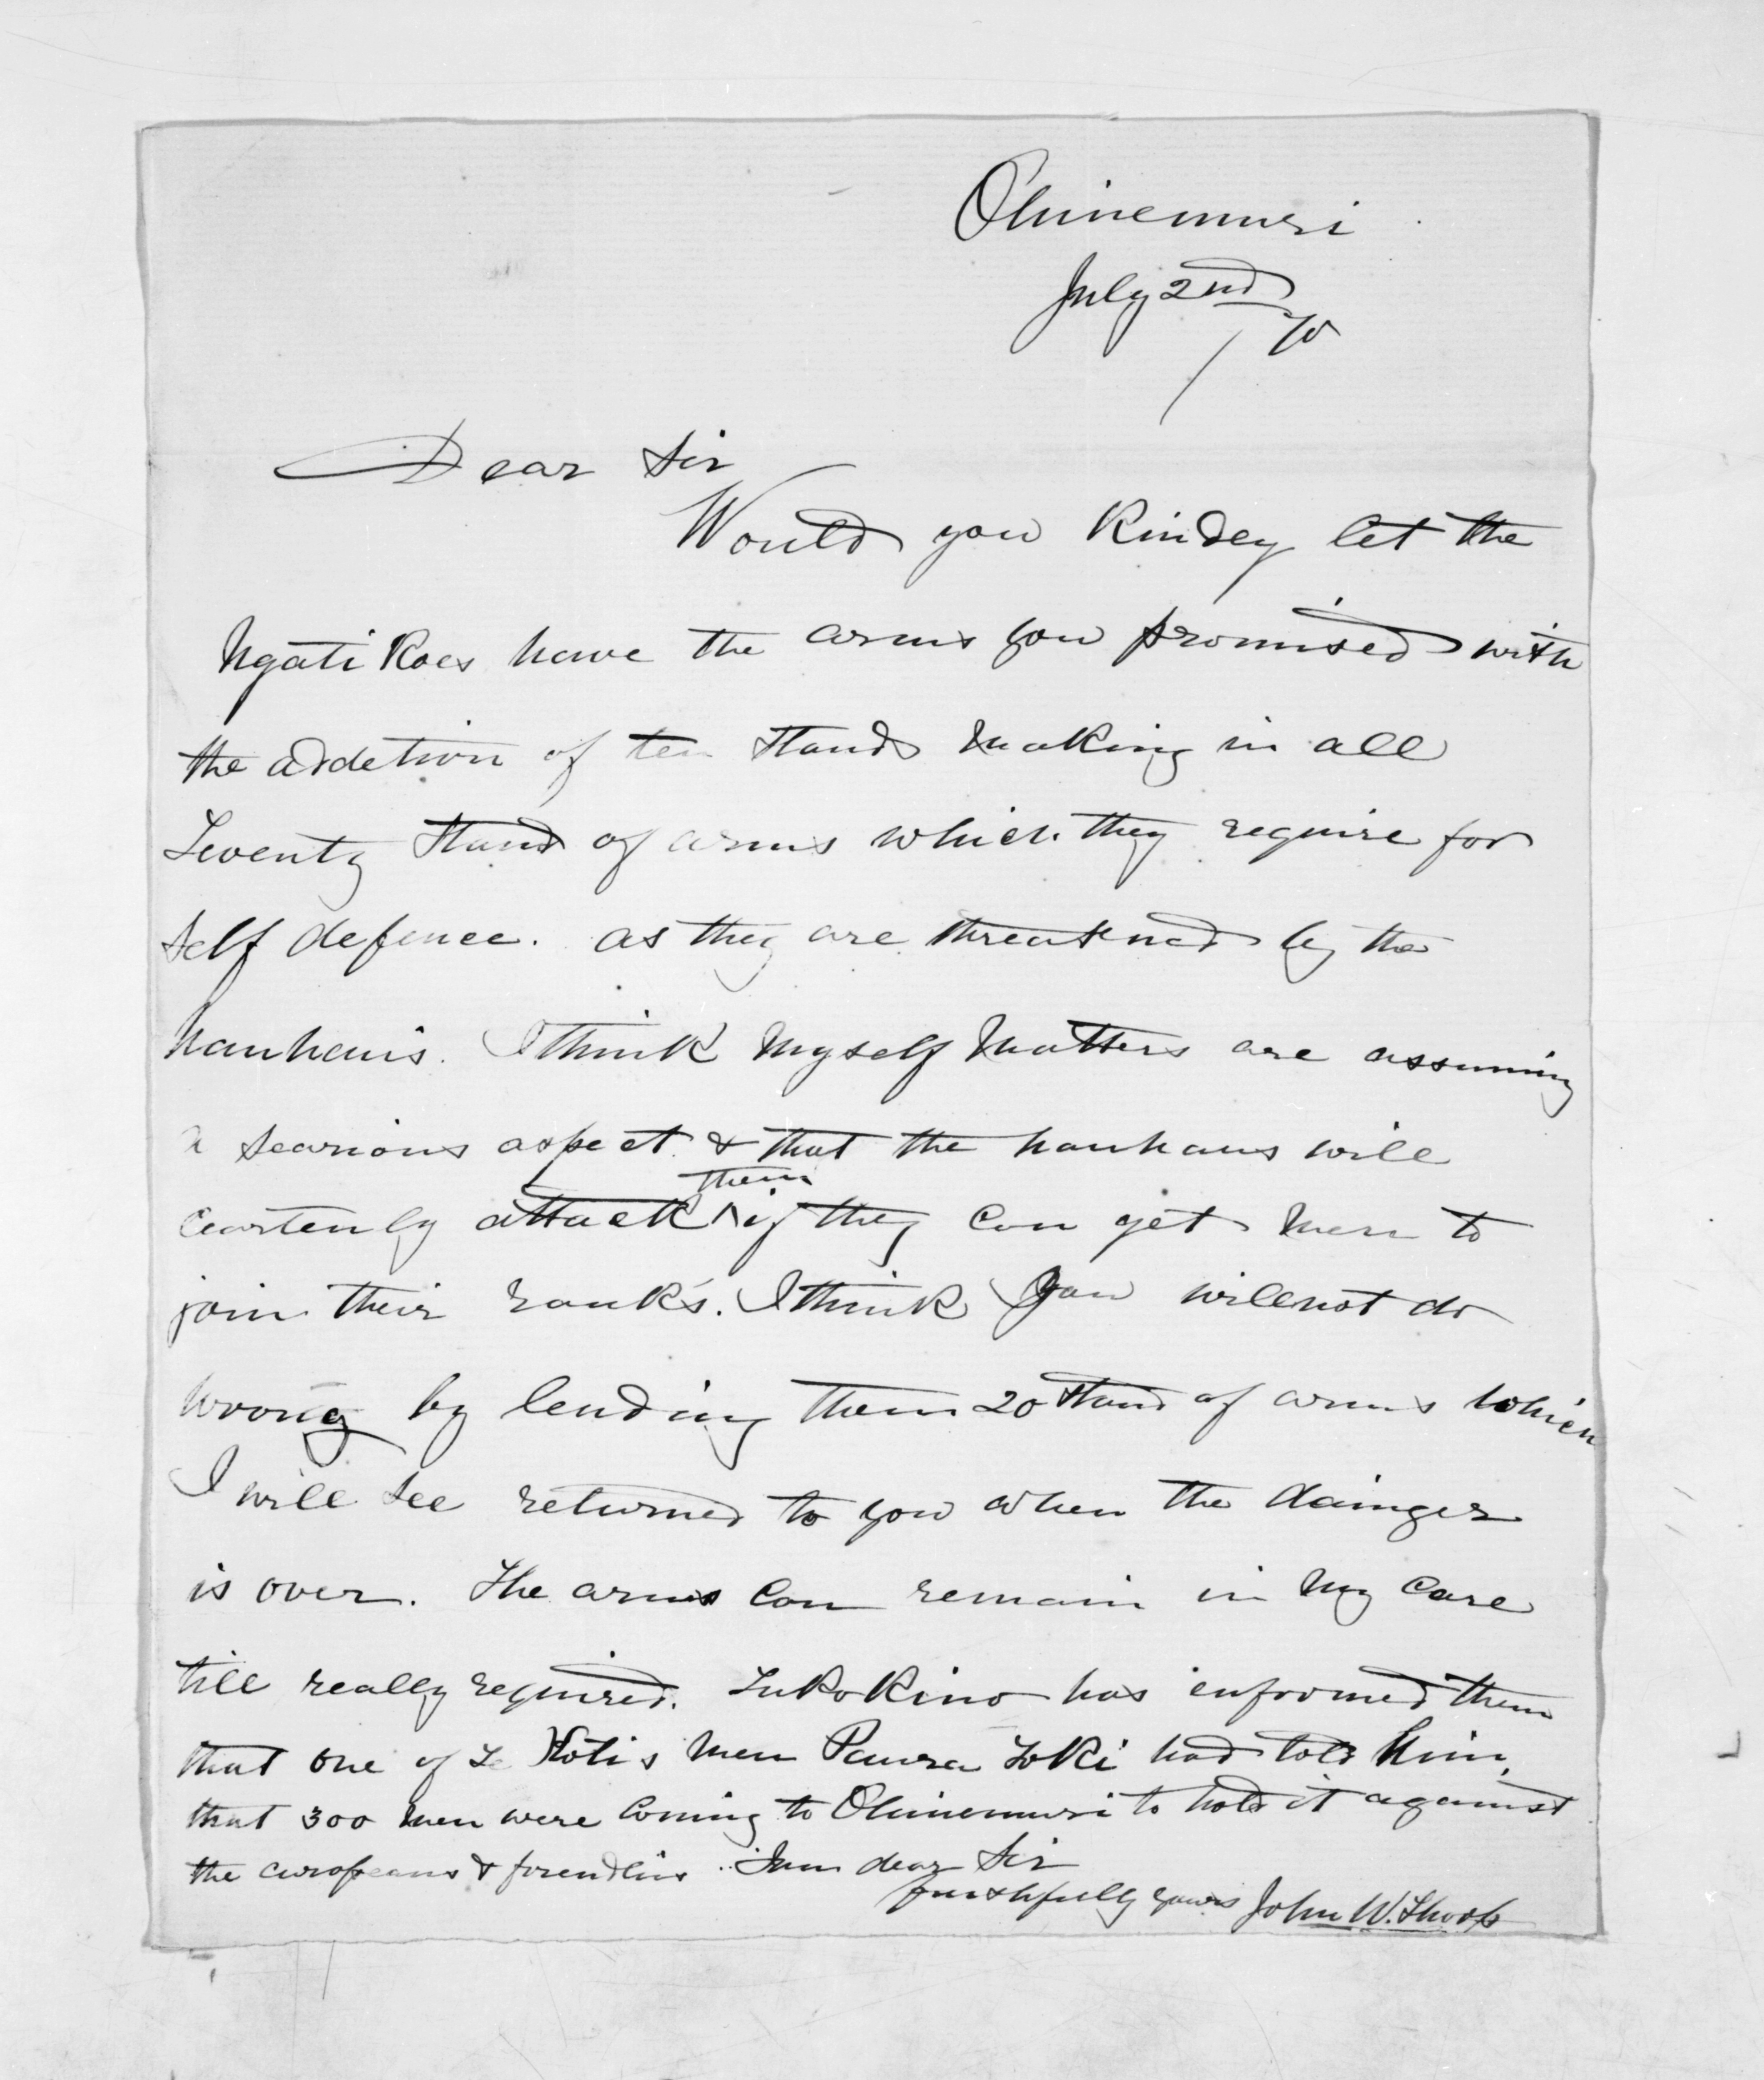 Ohinemuri
July 2nd
/70
Dear Sir
Would you kindey let the
Ngati Koes have the arms you promised with
the addetion of ten stands making in all
Twenty stand of arms which they require for
self defence. as they are threatned by the
hauhauis. I think myself matters are assuming
a searious aspect & that the hauhaus will
ceartenly attack them if they can get men to
join their ranks. I think you will not do
wrong by lending them 20 stand of arms which
I will see returned to you when the dainger
is over. The arms can remain in my care
till really required. Tukukino has enformed them
that one of Te Kotis men Paura Toki had told him,
that 300 men were coming to Ohinemuri to hold it against
the europeans & friendlis. I am dear Sir
faithfully yours John W. Thorp